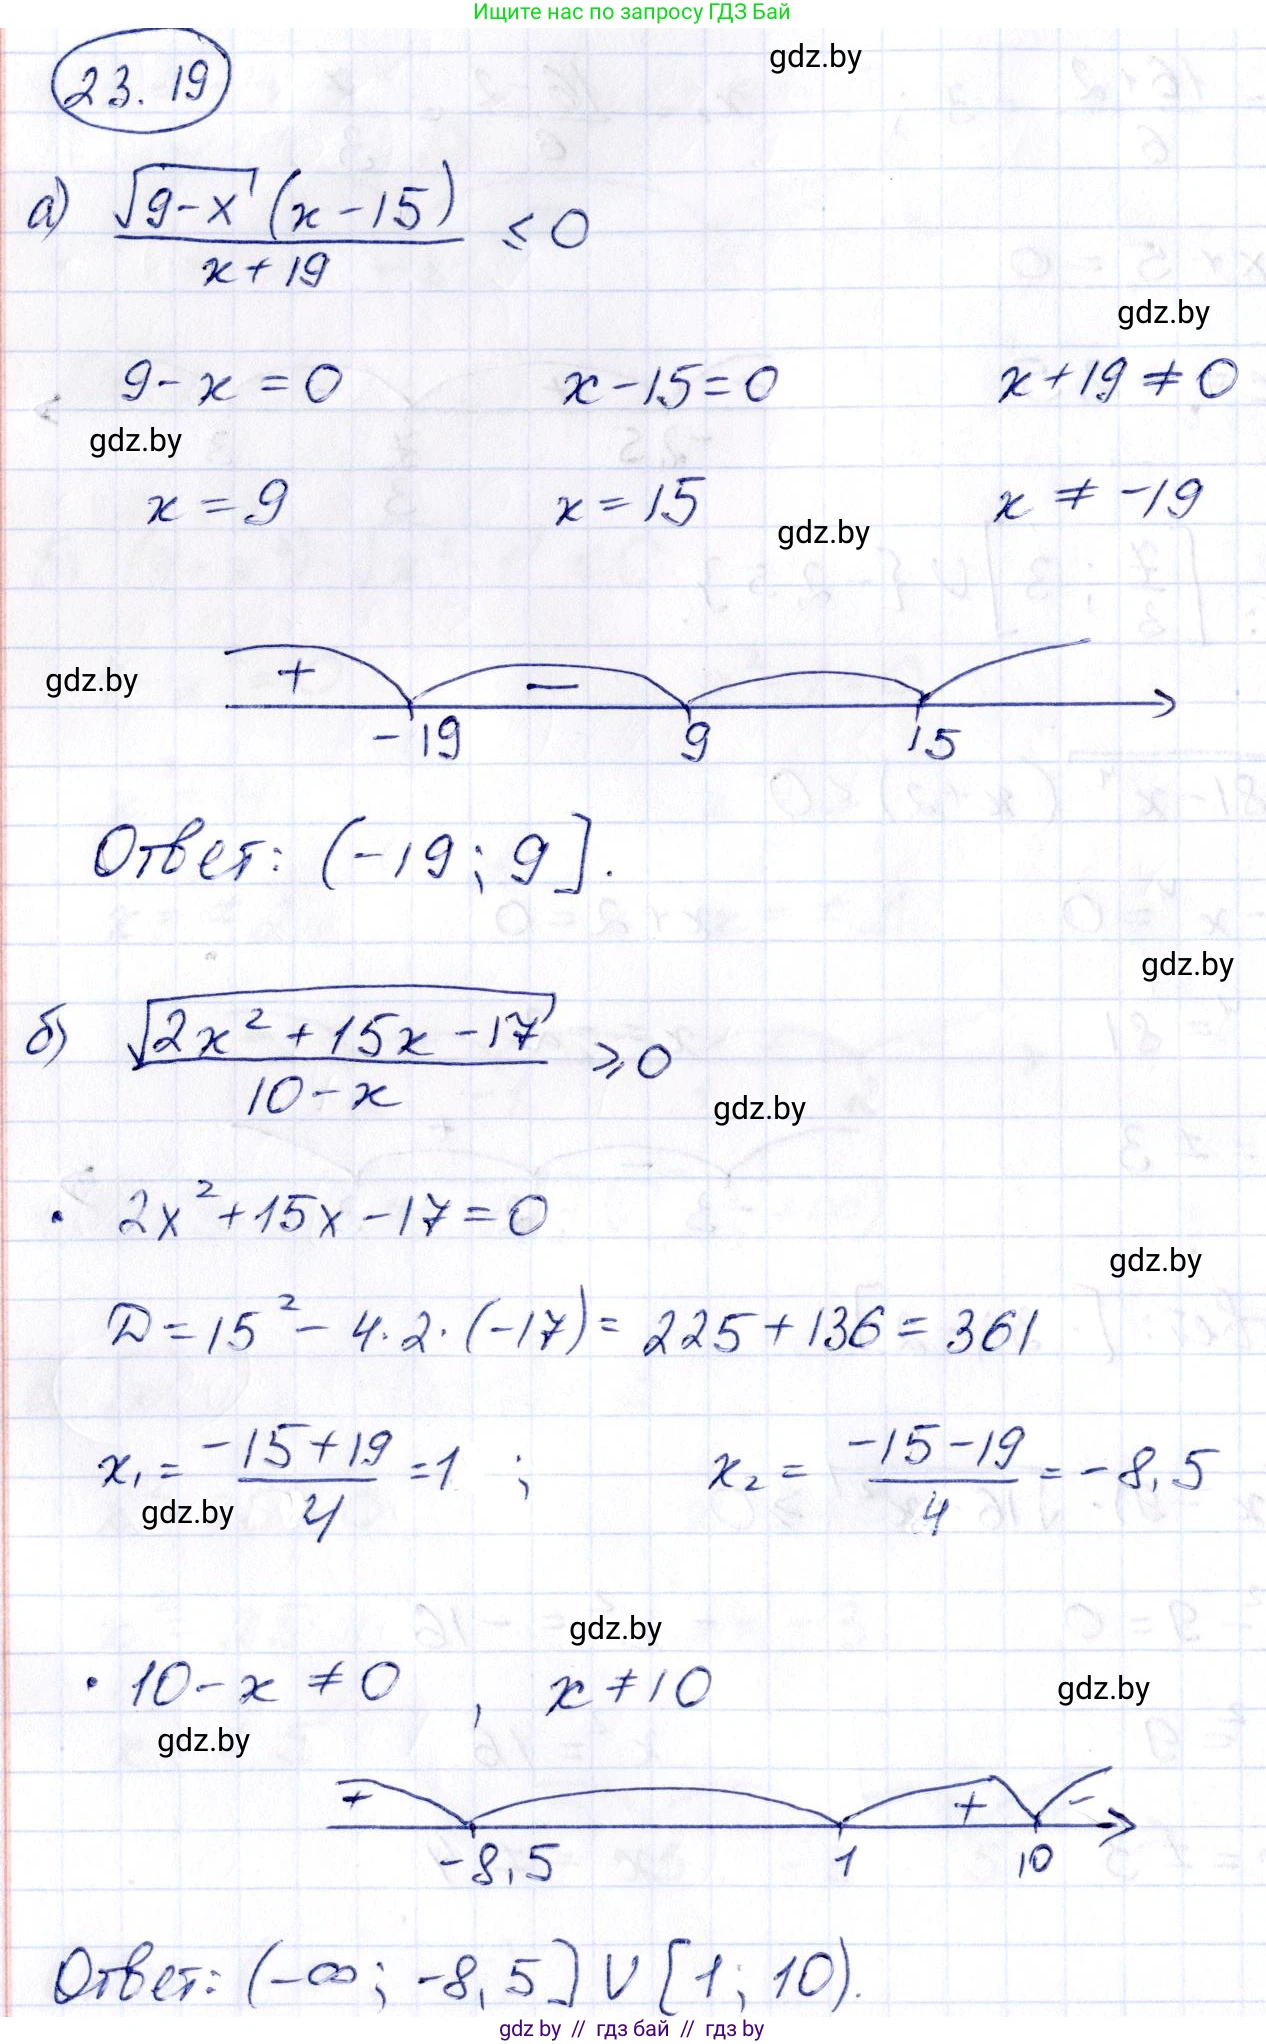 Ищите нас по запросу ГДЗ Бай
gdz.by
23.19
а) √(9-x) (x-15) / (x+19) ≤ 0
gdz.by
9-x=0 x-15=0 x+19≠0
gdz.by
x=9 x=15 x≠-19
gdz.by
+ −
gdz.by
-19 9 15
Ответ: (-19; 9].
gdz.by
б) √(2x²+15x-17) / (10-x) ≥ 0
gdz.by
• 2x²+15x-17=0
gdz.by
D=15²-4·2·(-17)=225+136=361
x₁= (-15+19)/4 =1 ; x₂= (-15-19)/4 =-8,5
gdz.by
gdz.by
• 10-x≠0 , x≠10
gdz.by
gdz.by
+ + -
-8,5 1 10
Ответ: (-∞; -8,5] ∪ [1; 10).
gdz by // гдз бай // гдз by